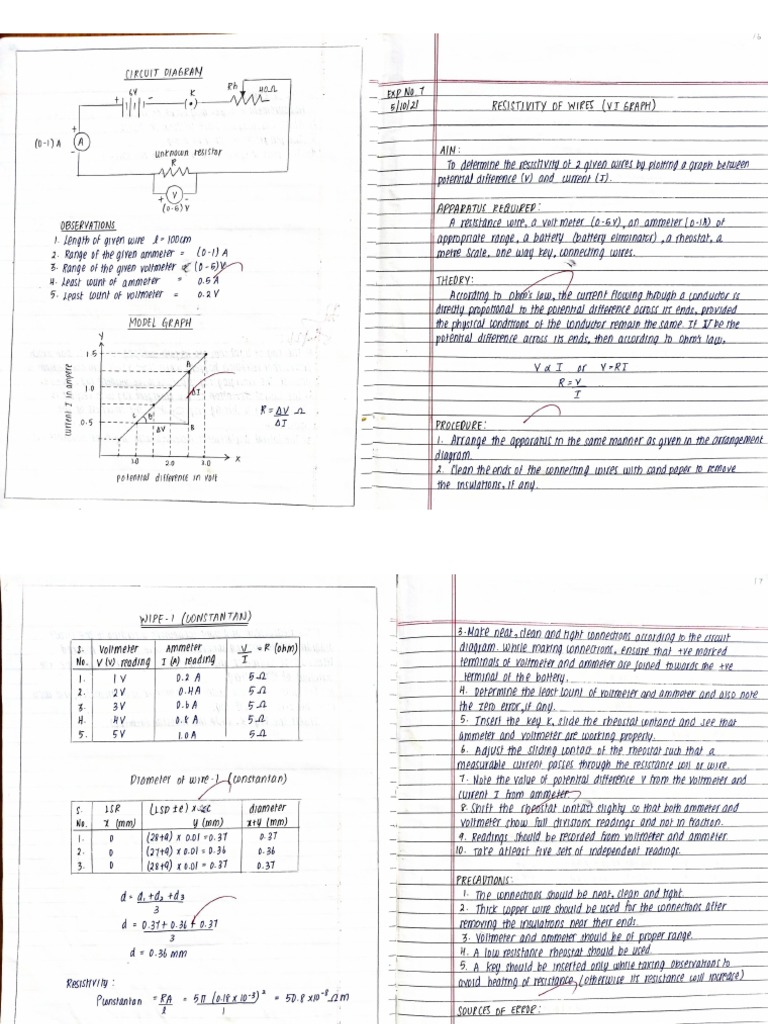 CIRCUIT DIAGRAM
6V
K
Rh
40Ω
+
-
(0-1) A
A
+
-
Unknown resistor
R
+
V
-
(0-5) V
OBSERVATIONS
1. Length of given wire l = 100cm
2. Range of the given ammeter = (0-1) A
3. Range of the given voltmeter = (0-5) V
4. Least count of ammeter = 0.5 A
5. Least count of voltmeter = 0.2 V
MODEL GRAPH
Y
1.5
1.0
0.5
current I in ampere
A
ΔI
C
θ
ΔV
B
1.0
2.0
3.0
X
potential difference in volt
R = ΔV Ω
ΔI
16
EXP NO. 7
5/10/21
RESISTIVITY OF WIRES (VI GRAPH)
AIM:
To determine the resistivity of 2 given wires by plotting a graph between
potential difference (V) and current (I).
APPARATUS REQUIRED:
A resistance wire, a voltmeter (0-5V), an ammeter (0-1A) of
appropriate range, a battery (battery eliminator), a rheostat, a
metre scale, one way key, connecting wires.
THEORY:
According to Ohm's law, the current flowing through a conductor is
directly propotional to the potential difference across its ends, provided
the physical conditions of the conductor remain the same. If V be the
potential difference across its ends, then according to ohm's law,
V α I or V=RI
R = V
I
PROCEDURE:
1. Arrange the apparatus in the same manner as given in the arrangement
diagram.
2. Clean the ends of the connecting wires with sand paper to remove
the insulations, if any.
WIRE-1 (CONSTANTAN)
S. No. Voltmeter V (V) reading Ammeter I (A) reading V/I = R (ohm)
1. 1V 0.2 A 5Ω
2. 2V 0.4A 5Ω
3. 3V 0.6A 5Ω
4. 4V 0.8A 5Ω
5. 5V 1.0A 5Ω
Diameter of wire-1 (constantan)
S. No. LSR x (mm) (LSD ± e) x LC y (mm) diameter x+y (mm)
1. 0 (28+9) x 0.01 = 0.37 0.37
2. 0 (27+9) x 0.01 = 0.36 0.36
3. 0 (28+9) x 0.01 = 0.37 0.37
d = d1 + d2 + d3
3
d = 0.37 + 0.36 + 0.37
3
d = 0.36 mm
Resistivity:
ρconstantan = RA/l = 5π (0.18 x 10⁻³)²/1 = 50.8 x 10⁻⁸ Ωm
17
3. Make neat, clean and tight connections according to the circuit
diagram. While making connections, ensure that +ve marked
terminals of voltmeter and ammeter are joined towards the +ve
terminal of the battery.
4. Determine the least count of voltmeter and ammeter and also note
the zero error, if any.
5. Insert the key K, slide the rheostat contanct and see that
ammeter and voltmeter are working properly.
6. Adjust the sliding contact of the rheostat such that a
measurable current passes through the resistance coil or wire.
7. Note the value of potential difference V from the voltmeter and
current I from ammeter
8. Shift the rheostat contact slighty so that both ammeter and
voltmeter show full divisions readings and not in fraction.
9. Readings should be recorded from voltmeter and ammeter
10. Take atleast five sets of independent readings.
PRECAUTIONS:
1. The connections should be neat, clean and tight.
2. Thick copper wire should be used for the connections after
removing the insulations near their ends.
3. Voltmeter and ammeter should be of proper range.
4. A low resistance rheostat should be used.
5. A key should be inserted only while taking observations to
avoid heating of resistance, (otherwise its resistance will increase)
SOURCES OF ERROR: